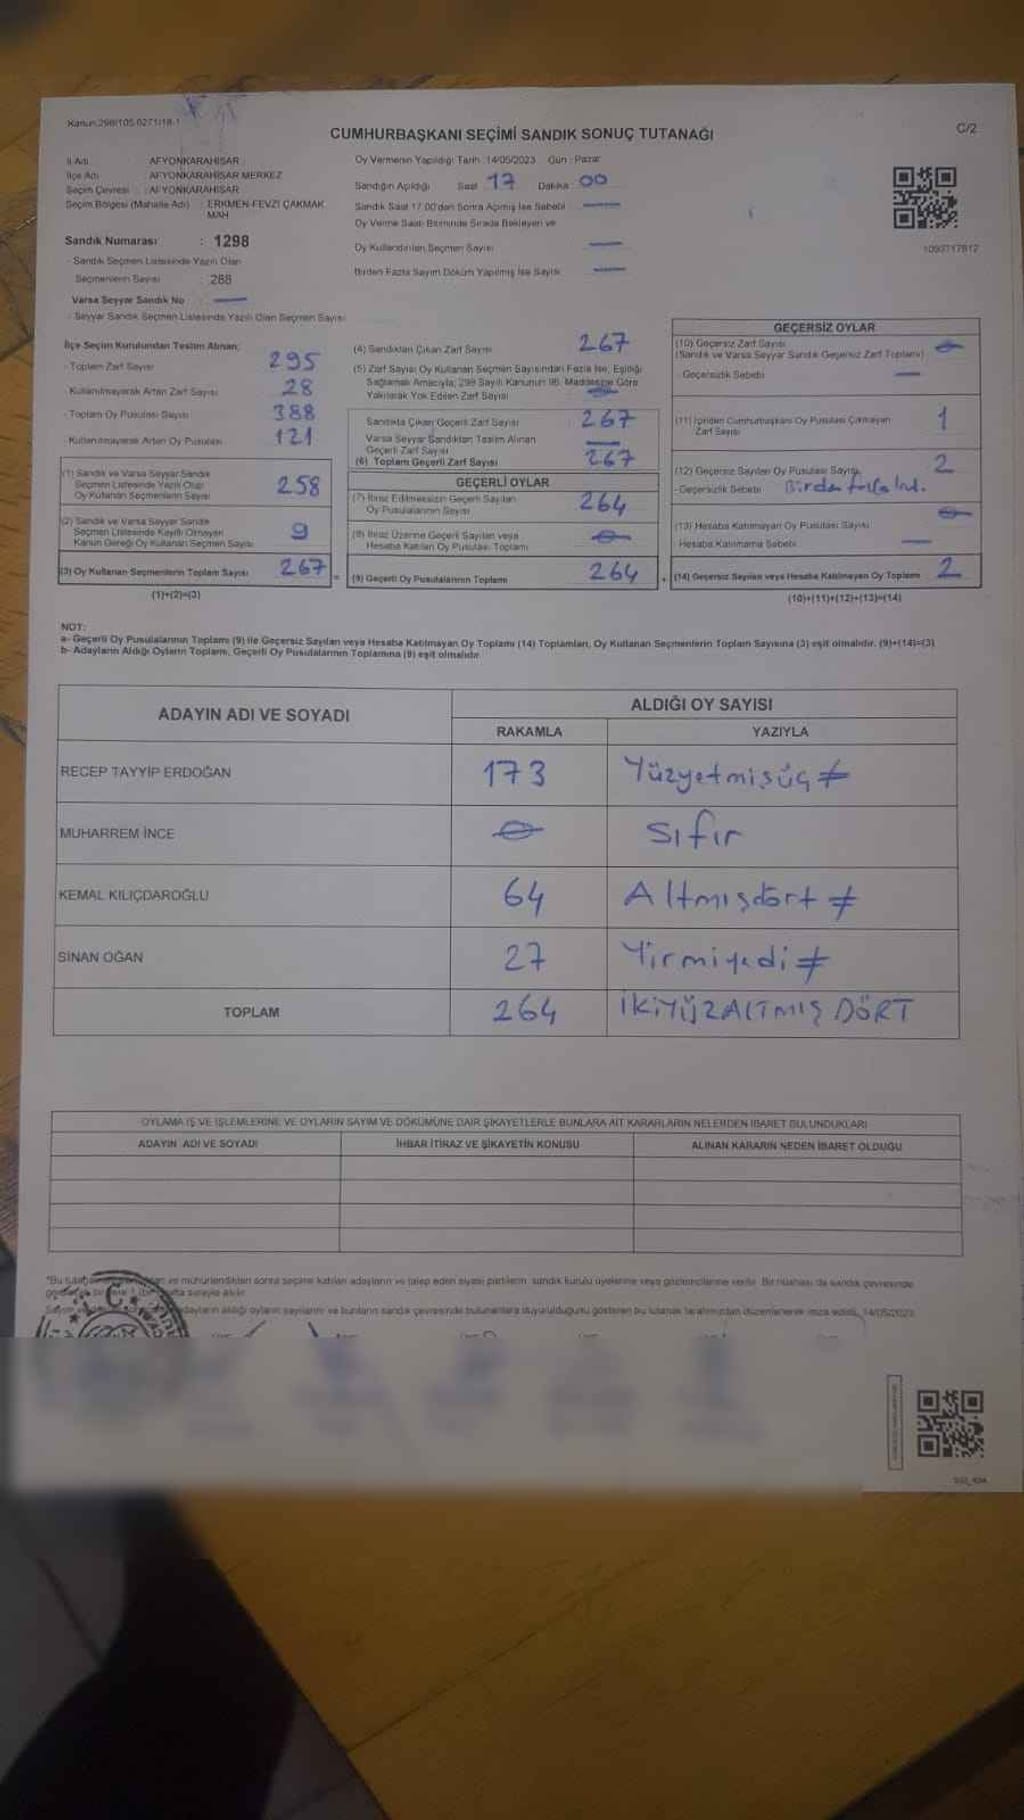 Kanun:298/105.0271/18-1
CUMHURBAŞKANI SEÇİMİ SANDIK SONUÇ TUTANAĞI
C/2
İl Adı : AFYONKARAHİSAR
İlçe Adı : AFYONKARAHİSAR MERKEZ
Seçim Çevresi : AFYONKARAHİSAR
Seçim Bölgesi (Mahalle Adı) : ERKMEN-FEVZİ ÇAKMAK MAH
Sandık Numarası : 1298
- Sandık Seçmen Listesinde Yazılı Olan
Seçmenlerin Sayısı : 288
Varsa Seyyar Sandık No —
- Seyyar Sandık Seçmen Listesinde Yazılı Olan Seçmen Sayısı
Oy Vermenin Yapıldığı Tarih :14/05/2023 Gün : Pazar
Sandığın Açıldığı Saat 17 Dakika : 00
Sandık Saat 17.00'den Sonra Açılmış İse Sebebi —
Oy Verme Saati Bitiminde Sırada Bekleyen ve
Oy Kullandırılan Seçmen Sayısı —
Birden Fazla Sayım Döküm Yapılmış İse Sayısı —
1093717812
İlçe Seçim Kurulundan Teslim Alınan;
- Toplam Zarf Sayısı 295
- Kullanılmayarak Artan Zarf Sayısı 28
- Toplam Oy Pusulası Sayısı 388
- Kullanılmayarak Artan Oy Pusulası 121
(1) Sandık ve Varsa Seyyar Sandık
Seçmen Listesinde Yazılı Olup
Oy Kullanan Seçmenlerin Sayısı 258
(2) Sandık ve Varsa Seyyar Sandık
Seçmen Listesinde Kayıtlı Olmayan
Kanun Gereği Oy Kullanan Seçmen Sayısı 9
(3) Oy Kullanan Seçmenlerin Toplam Sayısı 267
(1)+(2)=(3)
(4) Sandıktan Çıkan Zarf Sayısı 267
(5) Zarf Sayısı Oy Kullanan Seçmen Sayısından Fazla İse, Eşitliği
Sağlamak Amacıyla, 298 Sayılı Kanunun 98. Maddesine Göre
Yakılarak Yok Edilen Zarf Sayısı
Sandıkta Çıkan Geçerli Zarf Sayısı 267
Varsa Seyyar Sandıktan Teslim Alınan
Geçerli Zarf Sayısı —
(6) Toplam Geçerli Zarf Sayısı 267
GEÇERLİ OYLAR
(7) İtiraz Edilmeksizin Geçerli Sayılan
Oy Pusulalarının Sayısı 264
(8) İtiraz Üzerine Geçerli Sayılan veya
Hesaba Katılan Oy Pusulası Toplamı 0
(9) Geçerli Oy Pusulalarının Toplamı 264
GEÇERSİZ OYLAR
(10) Geçersiz Zarf Sayısı
(Sandık ve Varsa Seyyar Sandık Geçersiz Zarf Toplamı) 0
- Geçersizlik Sebebi —
(11) İçinden Cumhurbaşkanı Oy Pusulası Çıkmayan
Zarf Sayısı 1
(12) Geçersiz Sayılan Oy Pusulası Sayısı 2
- Geçersizlik Sebebi Birden fazla
(13) Hesaba Katılmayan Oy Pusulası Sayısı 0
Hesaba Katılmama Sebebi —
(14) Geçersiz Sayılan veya Hesaba Katılmayan Oy Toplamı 2
(10)+(11)+(12)+(13)=(14)
NOT:
a- Geçerli Oy Pusulalarının Toplamı (9) ile Geçersiz Sayılan veya Hesaba Katılmayan Oy Toplamı (14) Toplamları, Oy Kullanan Seçmenlerin Toplam Sayısına (3) eşit olmalıdır. (9)+(14)=(3)
b- Adayların Aldığı Oyların Toplamı, Geçerli Oy Pusulalarının Toplamına (9) eşit olmalıdır.
ADAYIN ADI VE SOYADI
ALDIĞI OY SAYISI
RAKAMLA YAZIYLA
RECEP TAYYİP ERDOĞAN 173 Yüzyetmişüç
MUHARREM İNCE 0 Sıfır
KEMAL KILIÇDAROĞLU 64 Altmışdört
SİNAN OĞAN 27 Yirmiyedi
TOPLAM 264 İKİYÜZALTMIŞ DÖRT
OYLAMA İŞ VE İŞLEMLERİNE VE OYLARIN SAYIM VE DÖKÜMÜNE DAİR ŞİKAYETLERLE BUNLARA AİT KARARLARIN NELERDEN İBARET BULUNDUKLARI
ADAYIN ADI VE SOYADI İHBAR İTİRAZ VE ŞİKAYETİN KONUSU ALINAN KARARIN NEDEN İBARET OLDUĞU
ve mühürlendikten sonra seçime katılan adayların ve talep eden siyasi partilerin sandık kurulu üyelerine veya gözlemcilerine verilir. Bir nüshası da sandık çevresinde
adayların aldığı oyların sayılarını ve bunların sandık çevresinde bulunanlara duyurulduğunu gösteren bu tutanak tarafımızdan düzenlenerek imza edildi. 14/05/2023
T.C.